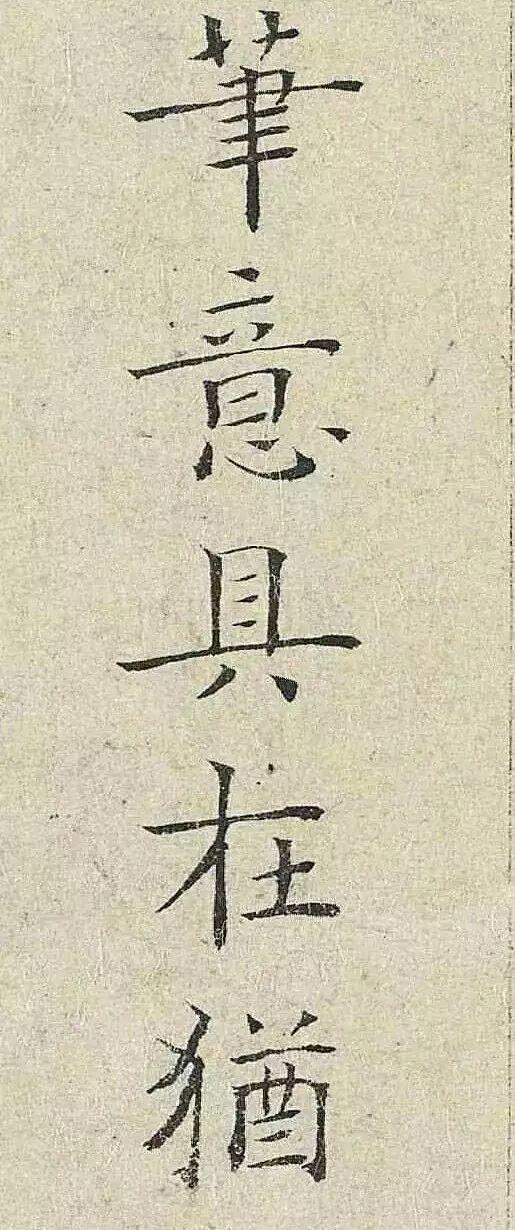 筆意具在猶